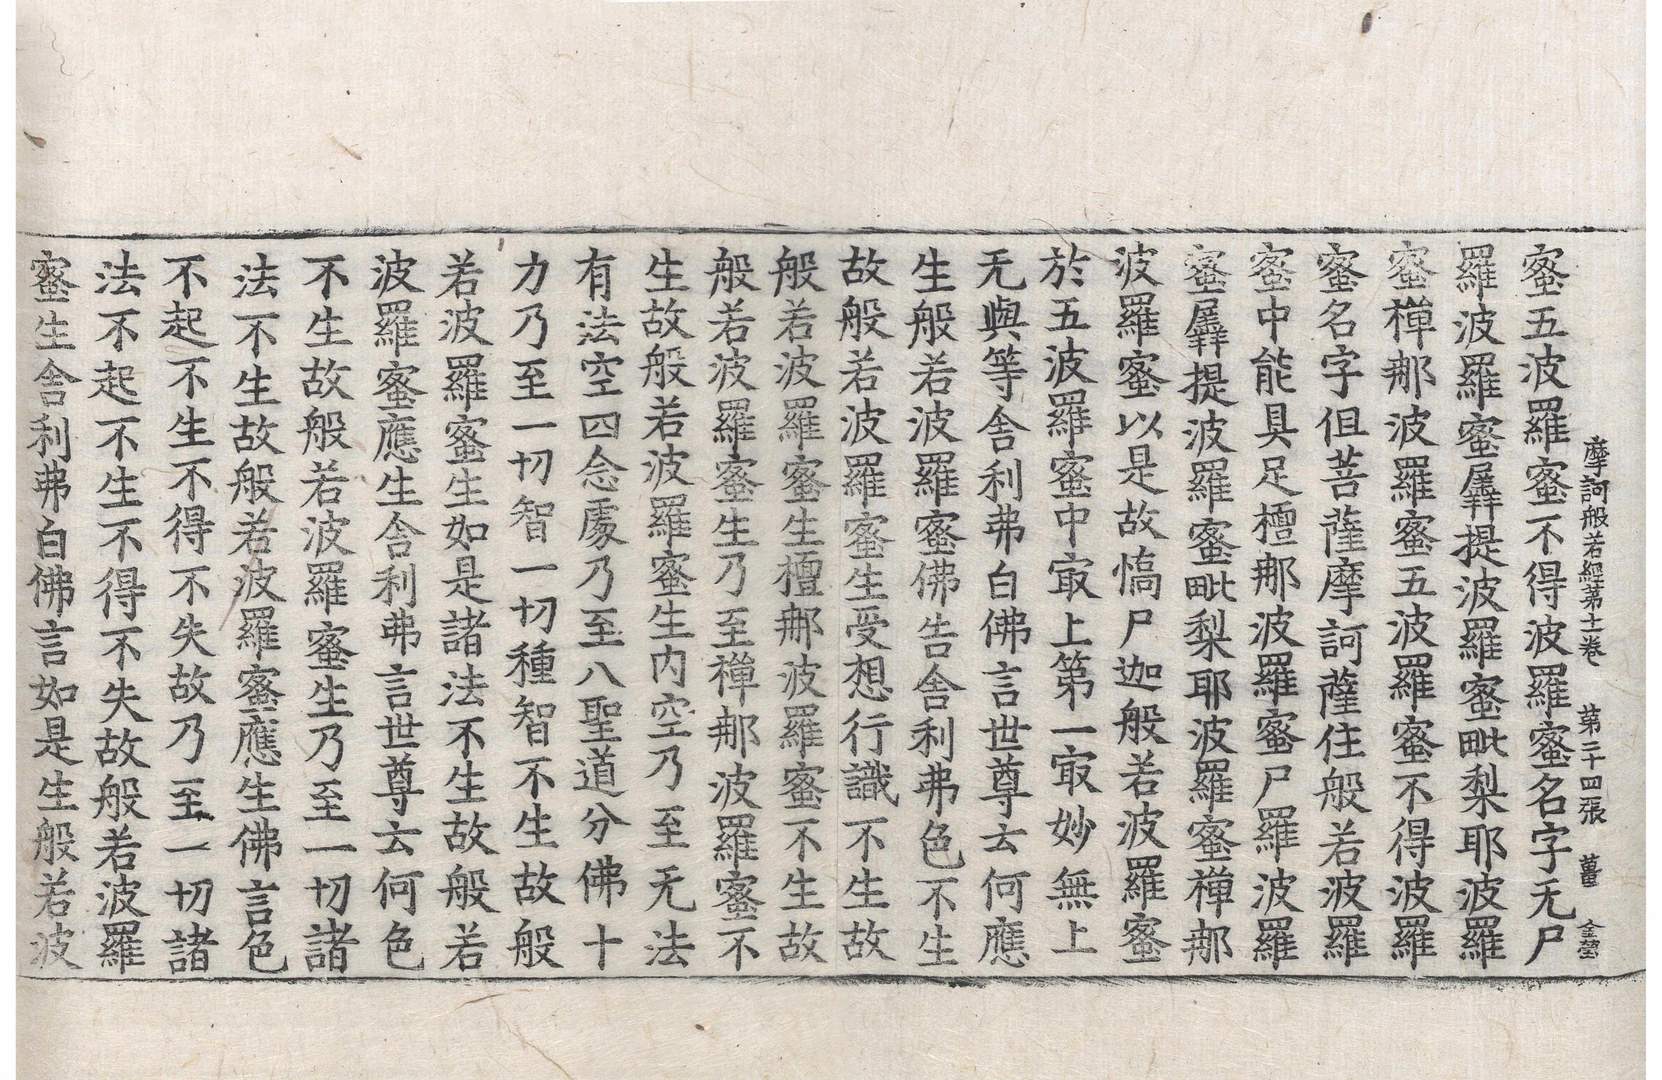 摩訶般若經第十一卷 第二十四張 薑 金瑩
蜜五波羅蜜不得波羅蜜名字无尸
羅波羅蜜羼提波羅蜜毗梨耶波羅
蜜禪那波羅蜜五波羅蜜不得波羅
蜜名字但菩薩摩訶薩住般若波羅
蜜中能具足檀那波羅蜜尸羅波羅
蜜羼提波羅蜜毗梨耶波羅蜜禪那
波羅蜜以是故憍尸迦般若波羅蜜
於五波羅蜜中㝡上第一㝡妙無上
无與等舍利弗白佛言世尊云何應
生般若波羅蜜佛告舍利弗色不生
故般若波羅蜜生受想行識不生故
般若波羅蜜生檀那波羅蜜不生故
般若波羅蜜生乃至禪那波羅蜜不
生故般若波羅蜜生内空乃至无法
有法空四念處乃至八聖道分佛十
力乃至一切智一切種智不生故般
若波羅蜜生如是諸法不生故般若
波羅蜜應生舍利弗言世尊云何色
不生故般若波羅蜜生乃至一切諸
法不生故般若波羅蜜應生佛言色
不起不生不得不失故乃至一切諸
法不起不生不得不失故般若波羅
蜜生舍利弗白佛言如是生般若波